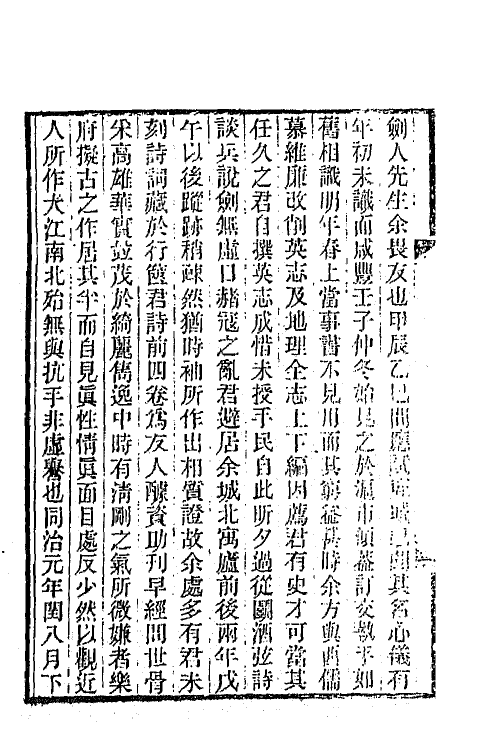 劍人先生余畏友也甲辰乙巳間應試已聞其名心儀有
年初未識面咸豐壬子仲冬始見之於滬市傾蓋訂交執手如
舊相識明年春上當事書不見用而其窮益甚時余方與西儒
慕維廉改削英志及地理全志上下編因薦君有史才可當其
任久之君自撰英志成惜未授手民自此昕夕過從鬭酒弦詩
談兵說劍無虛日赭冦之亂君避居余城北寓廬前後兩年戊
午以後蹤跡稍疎然猶時袖所作出相質證故余處多有君未
刻詩詞藏於行篋君詩前四卷爲友人醵資助刊早經問世骨
采高雄華實竝茂於綺麗雋逸中時有淸剛之氣所微嫌者樂
府擬古之作居其半而自見眞性情眞面目處反少然以觀近
人所作大江南北殆無與抗手非虛譽也同治元年閏八月下